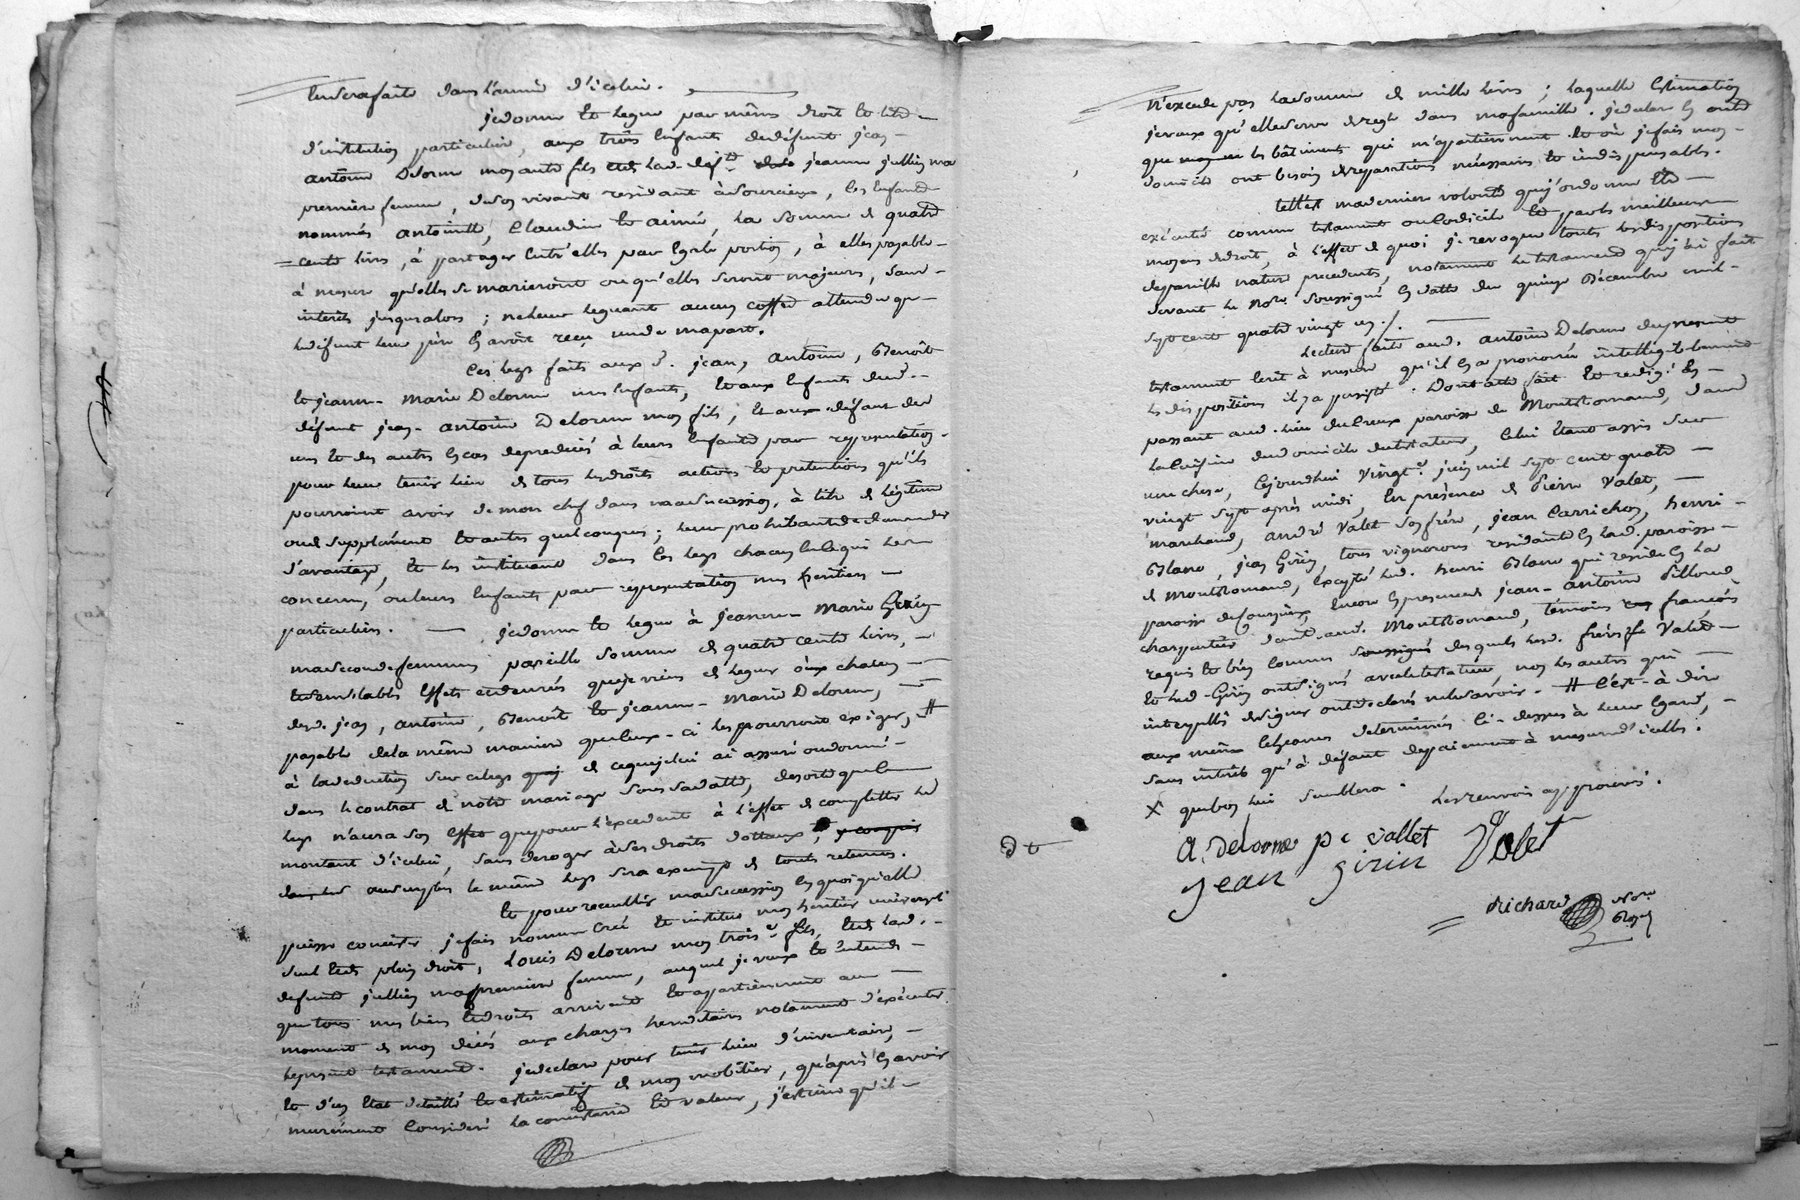 sera faite dans l'année d'icelui.
je donne et legue par même droit et titre
d'institution particuliere, aux trois enfants dudéfunt jean
antoine Delorme mon autre fils et de lad. defte jeanne jullien ma
premiere femme, de son vivant residant à Sourcieux, les enfants
nommés antoinette, Claudine et aimée, la somme de quatre
cents livres, à partager entr'elles par egale portion, à elles payable
à mesure qu'elles se marieront ou qu'elles seront majeures, sans
interêts jusqu'alors; ne leur leguant aucun coffre attendu que
ledéfunt leur père en avoit reçu un de ma part.
Ces legs faits aux d. jean, antoine, Benoît
et jeanne marie Delorme mes enfants, et aux enfants dud.
défunt jean antoine Delorme mon fils, et aux défaut des
uns et des autres en cas de predécés à leurs enfants par representation
pour leur tenir lieu de tous les droits actions et pretentions qu'ils
pourroient avoir de mon chef dans ma succession, à titre de légitime
ou de supplément et autres quelconques; leur prohibant de demander
d'avantage, et les instituant dans les legs chacun en ce qui le
concerne, ou leurs enfants par representation mes heritiers
particuliers. je donne et legue à jeanne marie Girin
ma seconde femme, pareille somme de quatre cents livres,
et semblables effets que je viens de leguer à un chacun
desd. jean, antoine, Benoît et jeanne marie Delorme,
payable de la même maniere que ceux-ci les pourront exiger, #
à la deduction sur ce legs de ce que je lui ai assuré ou donné
dans le contrat de notre mariage sous sa datte, desorte que le
legs n'aura son effet que pour l'excedent à l'effet de completter le
montant d'icelui, sans deroger à ses droits dottaux, y compris
au surplus le même legs sera exempt de toute retenue.
Et pour recueillir ma succession en quoi qu'elle
puisse consister je fais nomme créé et institue mon heritier universel
seul et de plein droit, Louis Delorme mon troise fils, et de lad.
defunte jullien ma premiere femme, auquel je veux et entends
que tous mes biens et droits arrivent et appartiennent au
moment de mon décés aux charges hereditaires notament d'exécuter
le present testament. je declare pour tenir lieu d'inventaire,
et d'un état detaillé et estimatif de mon mobilier, qu'après en avoir
murement consideré la consistance et valeur, j'estime qu'il
n'excede pas la somme de mille livres; laquelle estimation
je veux qu'elle serve de regle dans ma famille. je declare en outre
que les bâtiments qui m'appartiennent et où je fais mon
domicile ont besoin de reparations nécessaires et indispensables.
telle est ma derniere volonté que j'ordonne etre
exécutée comme testament ou codicile et par les meilleurs
moyens de droit, à l'effet de quoi je revoque toutes les dispositions
de pareille nature precedentes, notament le testament que j'ai fait
devant le Nore. soussigné en datte du quinze Décembre mil
sept cent quatre vingt un./.
Lecture faite aud. antoine Delorme du present
testament ecrit à mesure qu'il en a prononcé intelligiblement
les dispositions il y a persisté. Dont acte fait et redigé en
passant aud. lieu du Creux paroisse de Montromand, dans
la cuisine du domicile du testateur, celui étant assis sur
une chese, cejourdhui vingte. juin mil sept cent quatre
vingt sept après midi, En présence de Pierre Valet,
marchand, andré Valet son frère, jean Carrichon, henri
Blanc, jean Girin, tous vignerons residants en lad. paroisse
de Montromand, excepté led. henri Blanc qui reside en la
paroisse de Courzieu, encore en presence de jean antoine Pilloud
charpentier dud. Montromand, témoins françois
requis et bien connus desquels lesd. frères Valet
et led. Girin ont signé avec le testateur, non les autres qui
interpellés de signer ont declarés ne le savoir. # c'est à dire
aux mêmes échéances determinées ci-dessus à leur egard,
sans interêts qu'à défaut de paiement à mesure d'icelles.
X que bon lui semblera. les renvois approuvés.
A. delorme pe vallet Valet
jean girin
Richard Nore.
Royal